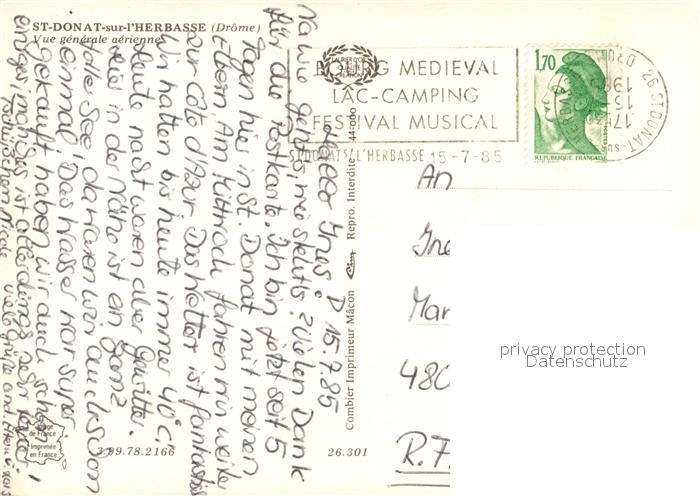 ST-DONAT-sur-l'HERBASSE (Drôme)
Vue générale aérienne
BOURG MEDIEVAL
LAC-CAMPING
FESTIVAL MUSICAL
ST DONAT S/L'HERBASSE 15-7-85
26 ST DONAT-SUR-
HERBASSE
17H
15
1985
1,70
REPUBLIQUE FRANÇAISE
D 15-7-85
Hallo Ines!
Na wie geht's, mie Vielen Dank
für die Postkarte. Ich bin jetzt seit 5
Tagen hie in St. Donat mit meinen
Eltern. Am Mittwoch fahren wir weiter
zur Côte d'Azur. Das Wetter ist fantastisch
Wir hatten bis heute immer 40°C,
heute nacht waren aber Gewitter.
Hier in der Nähe ist ein ganz
toller See, da waren wir auch schon
einmal. Das Wasser war super.
gekauft haben wir auch schon
einiges, manches ist allerdings sehr teuer.
Tschüßchen Nicole
Viele Grüße
An
Ine
Mar
480
R.F.
Combier Imprimeur Mâcon Cim Repro. Interdite 44-000
Image
de France
Imprimée
en France
3.99.78.2166
26.301
privacy protection
Datenschutz